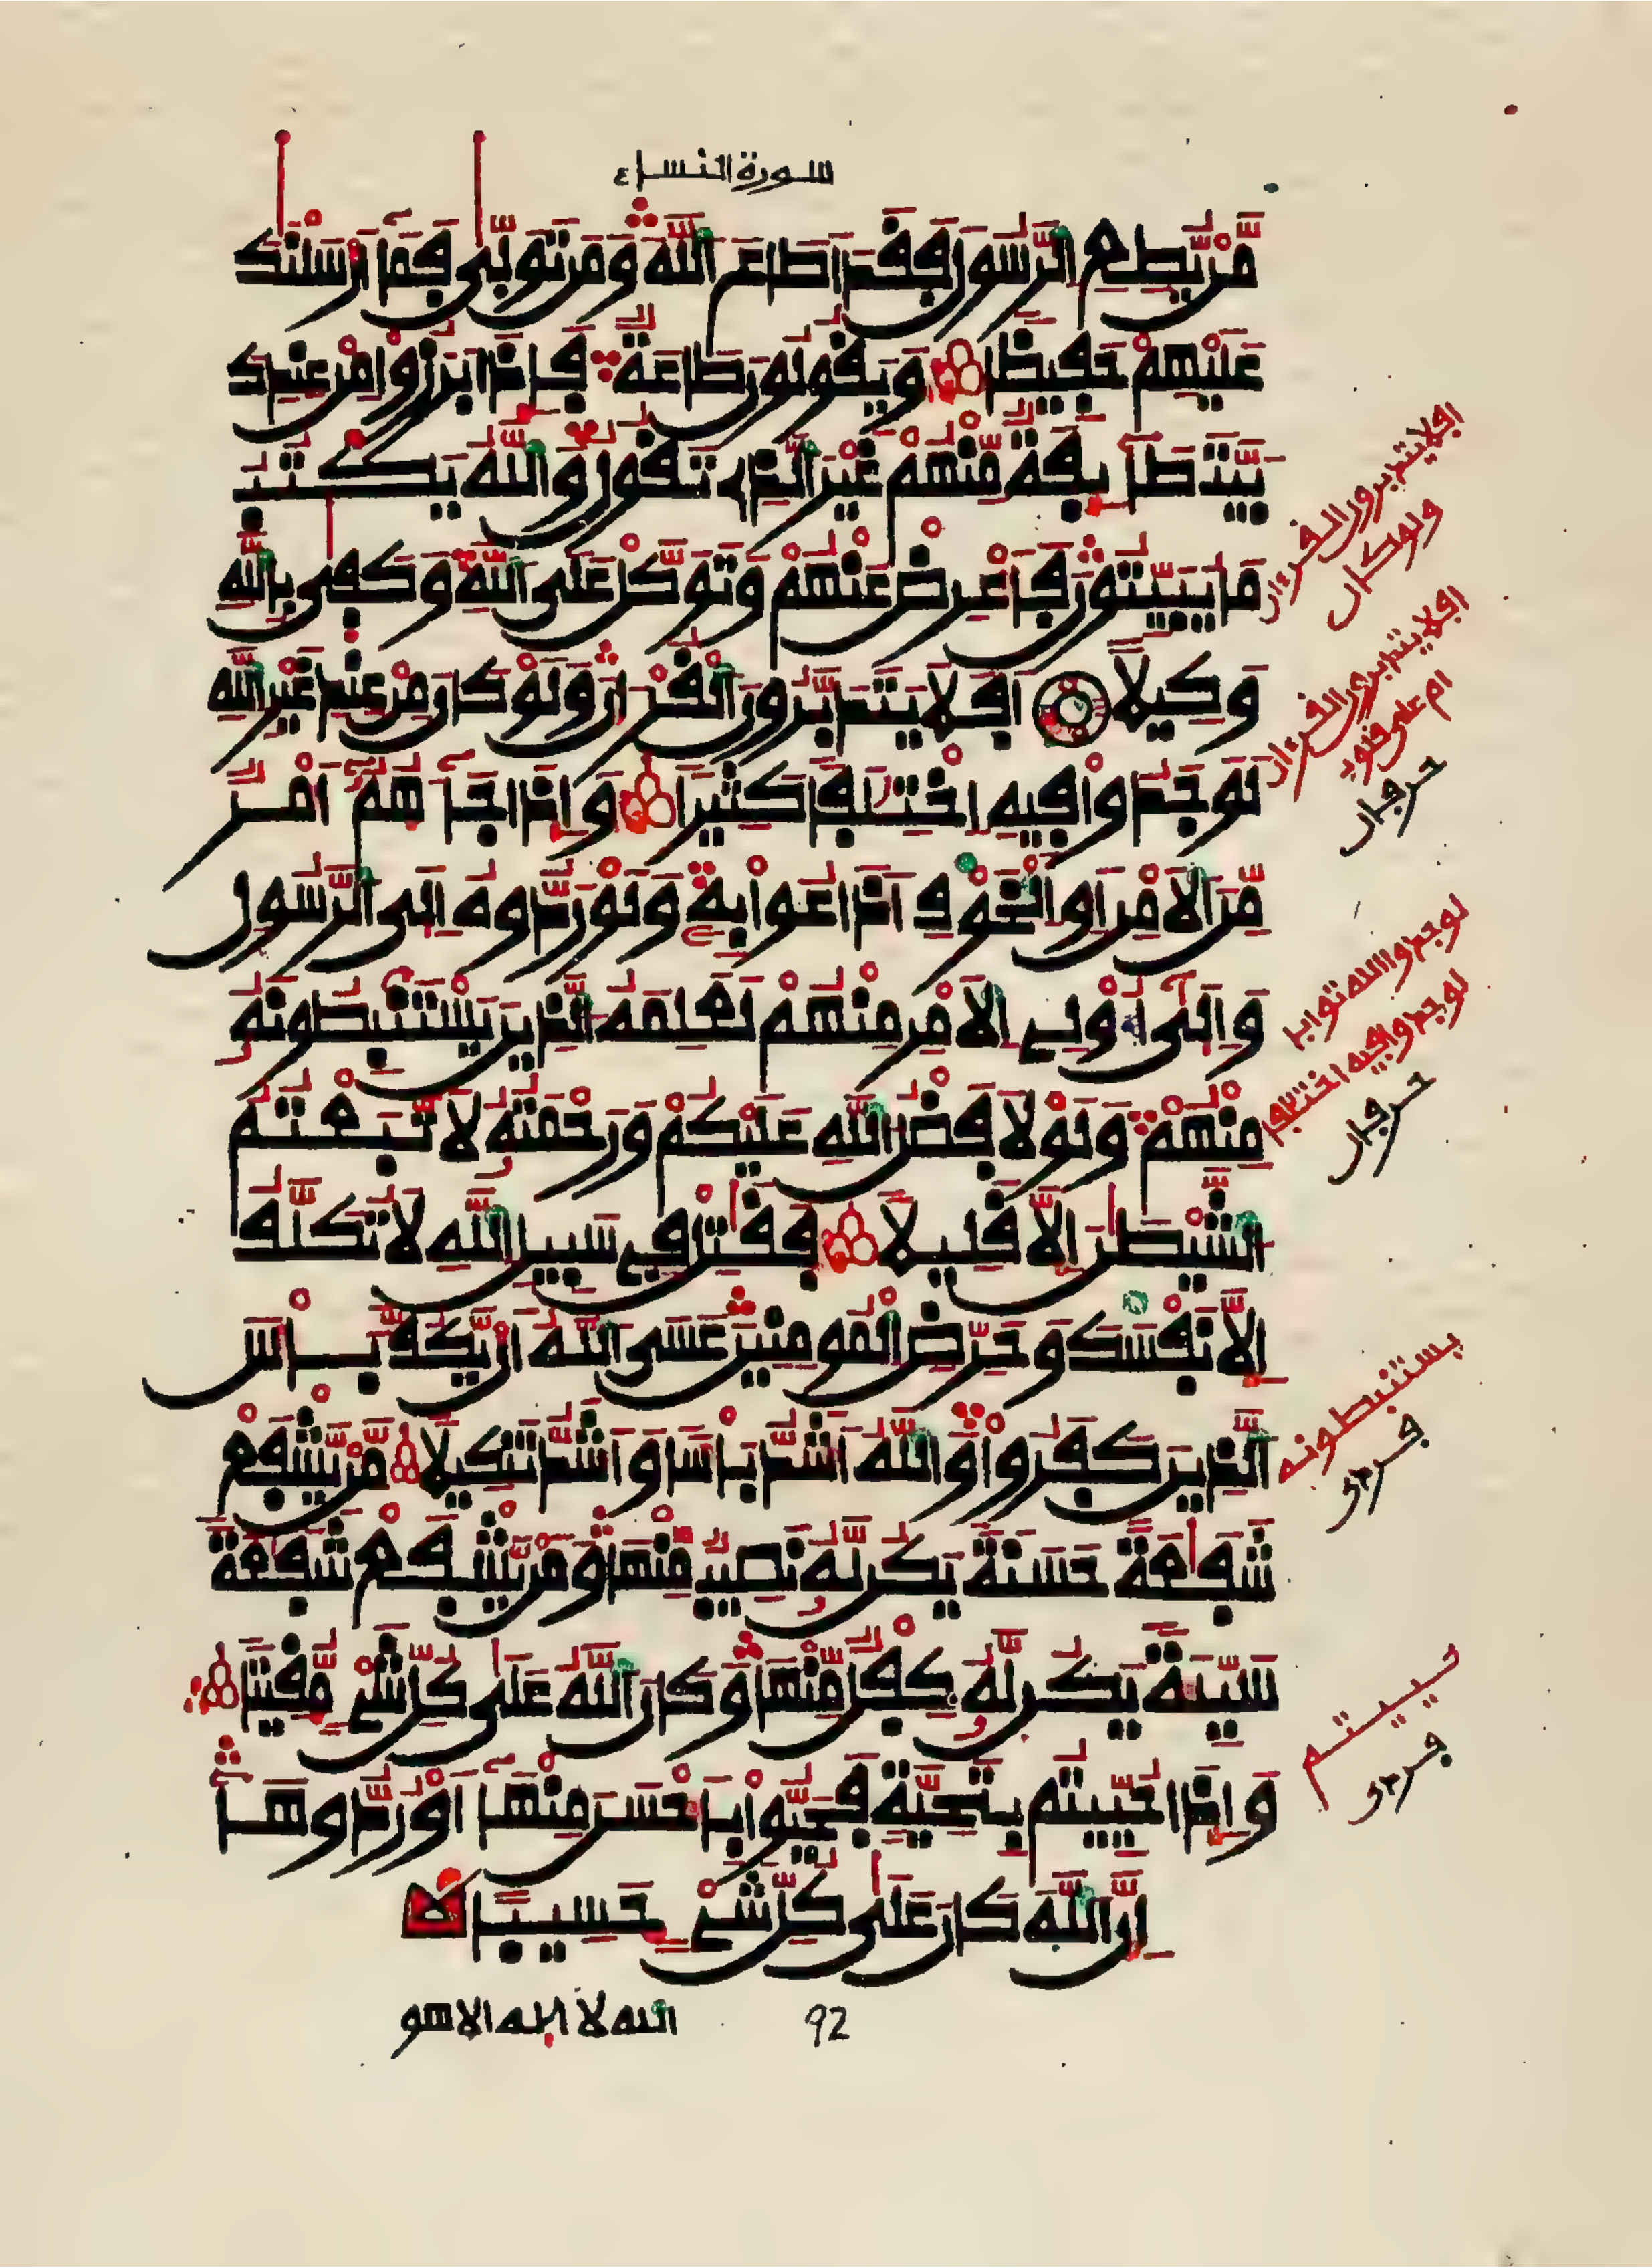 سورة النساء
مَّنْ يُّطِعِ الرَّسُولَ فَقَدَ اَطَاعَ اللَّهَ وَمَن تَوَلّٜي فَمَآ أَرْسَلْنَٰكَ
عَلَيْهِمْ حَفِيظاً وَيَقُولُونَ طَاعَةٌ فَإِذَا بَرَزُواْ مِنْ عِندِكَ
بَيَّتَ طَآئِفَةٌ مِّنْهُمْ غَيْرَ الَّذِے تَقُولُ وَاللَّهُ يَكْتُبُ
مَا يُبَيِّتُونَ فَأَعْرِضْ عَنْهُمْ وَتَوَكَّلْ عَلَى اللَّهِ وَكَفٜي بِاللَّهِ
وَكِيلاً اَفَلاَ يَتَدَبَّرُونَ الْقُرْءَانَ وَلَوْ كَانَ مِنْ عِندِ غَيْرِ اللَّهِ
لَوَجَدُواْ فِيهِ اِخْتِلَٰفاً كَثِيراً وَإِذَا جَآءَهُمُۥٓ أَمْرٌ
مِّنَ الاَمْنِ أَوِ الْخَوْفِ أَذَاعُواْ بِهِۦ وَلَوْ رَدُّوهُ إِلَى الرَّسُولِ
وَإِلٜيٓ أُوْلِے الاَمْرِ مِنْهُمْ لَعَلِمَهُ الَّذِينَ يَسْتَنۢبِطُونَهُۥ
مِنْهُمْ وَلَوْلاَ فَضْلُ اللَّهِ عَلَيْكُمْ وَرَحْمَتُهُۥ لاَتَّبَعْتُمُ
الشَّيْطَٰنَ إِلاَّ قَلِيلاً فَقَٰتِلْ فِے سَبِيلِ اللَّهِ لاَ تُكَلَّفُ
إِلاَّ نَفْسَكَ وَحَرِّضِ الْمُومِنِينَ عَسَى اللَّهُ أَنْ يَّكُفَّ بَأْسَ
الَّذِينَ كَفَرُواْ وَاللَّهُ أَشَدُّ بَأْساً وَأَشَدُّ تَنكِيلاً مَّنْ يَّشْفَعْ
شَفَٰعَةً حَسَنَةً يَكُن لَّهُۥ نَصِيبٌ مِّنْهَا وَمَنْ يَّشْفَعْ شَفَٰعَةً
سَيِّئَةً يَكُن لَّهُۥ كِفْلٌ مِّنْهَا وَكَانَ اللَّهُ عَلَىٰ كُلِّ شَےْءٍ مُّقِيتاً
وَإِذَا حُيِّيتُم بِتَحِيَّةٍ فَحَيُّواْ بِأَحْسَنَ مِنْهَآ أَوْ رُدُّوهَآ
إِنَّ اللَّهَ كَانَ عَلَىٰ كُلِّ شَےْءٍ حَسِيباً
الله لا إله الا هو
92
افلا يتدبرون القرءان
ولو كان
افلا يتدبرون القرءان
ام على قلوب
حرفان
لوجدوا الله توابا
لوجدوا فيه اختلفا
حرفان
يستنبطونه
حييتم